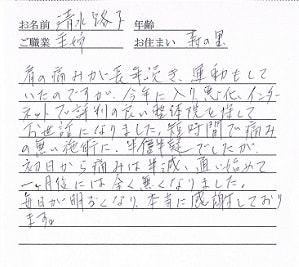 お名前 清水路子 年齢
ご職業 主婦 お住まい 寿の里
肩の痛みが長年続き、運動もして
いたのですが、今年に入り悪化、インター
ネットで評判の良い整体院を探して
お世話になりました。短時間で痛み
の無い施術に、半信半疑でしたが
初日から痛みは半減、通い始めて
一ヶ月後には全く無くなりました。
毎日が明るくなり、本当に感謝しており
ます。